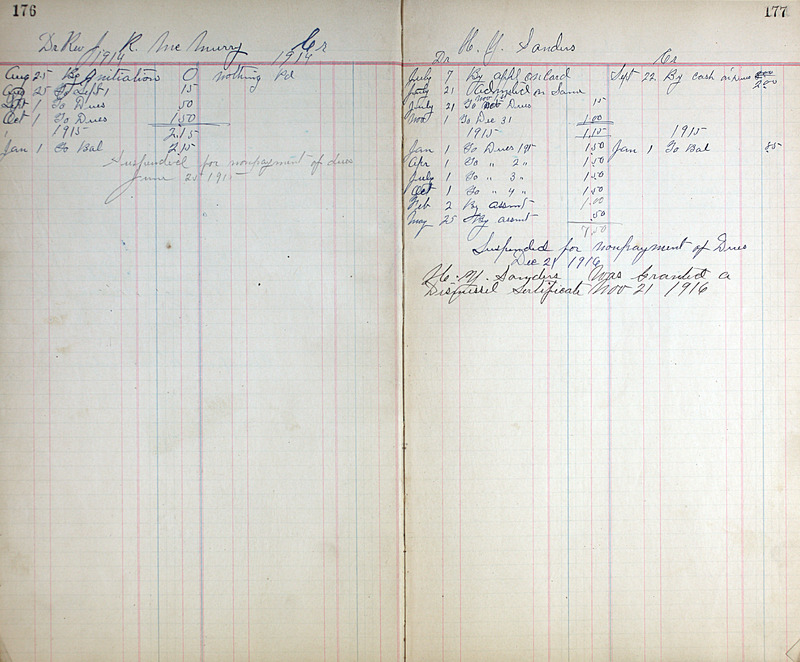 176
Dr Rev J. R. Mc Murry Cr
1914 1914
Aug 25 By Initiation 0 nothing Pd
Aug 25 Sept 1 15
Sept 1 To Dues 50
Oct 1 To Dues 1 50
1915 2.15
Jan 1 To Bal 2.15
Suspended for nonpayment of dues
June 25 1915
177
H. Y. Sanders
Dr Cr
July 7 By appl on card Sept 22 By cash on Dues 2.00
July 21 on same
July 21 To Dues 15
Nov 1 To Dec 31 1.00
1915 1.15 1915
Jan 1 To Dues 1 qr 1.50 Jan 1 To Bal 85
Apr 1 To " 2 " 1.50
July 1 To " 3 " 1.50
Oct 1 To " 4 " 1.50
Feb 2 By assmt 1.00
May 25 By assmt .50
7.50
Suspended for nonpayment of Dues
Dec 21 1916
Sanders Was Granted a
Dismissel Sertificate Nov 21 1916